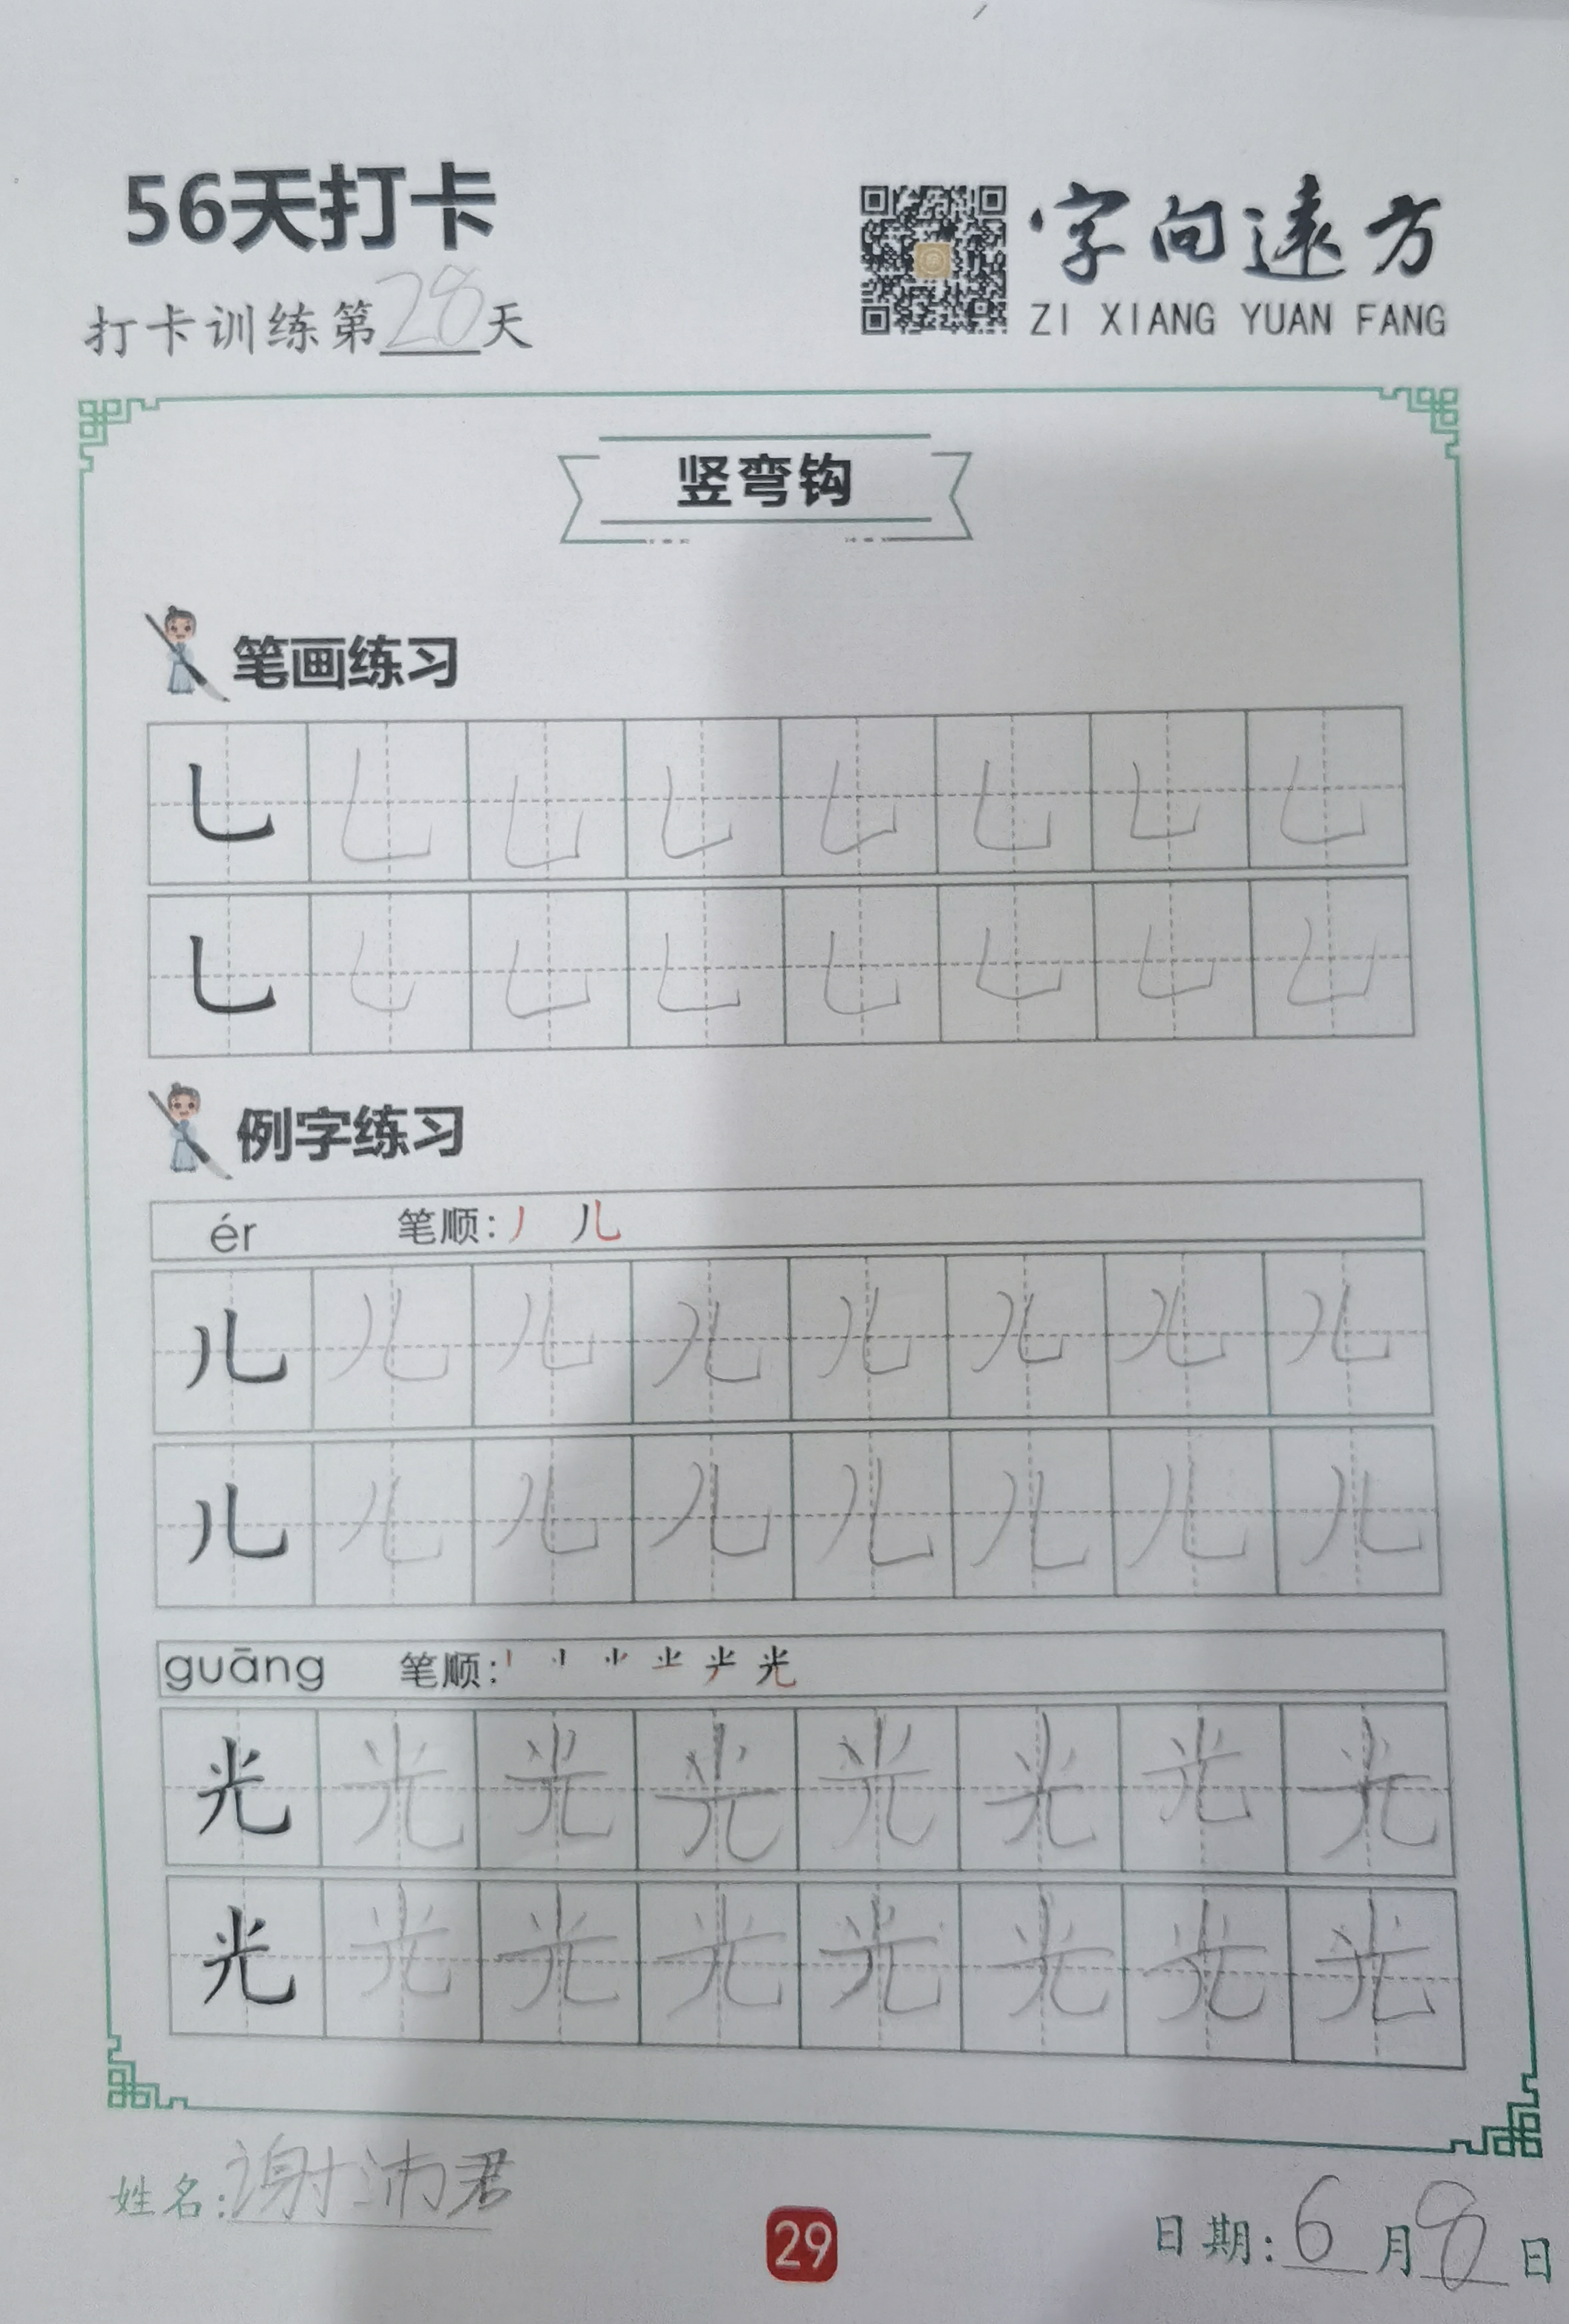 56天打卡
字向遠方
ZI XIANG YUAN FANG
打卡训练第28天
竖弯钩
笔画练习
乚 乚 乚 乚 乚 乚 乚 乚
乚 乚 乚 乚 乚 乚 乚 乚
例字练习
ér 笔顺: 丿 儿
儿 儿 儿 儿 儿 儿 儿 儿
儿 儿 儿 儿 儿 儿 儿 儿
guāng 笔顺: 光
光 光 光 光 光 光 光 光
光 光 光 光 光 光 光 光
姓名:谢沛君
29
日期:6月8日